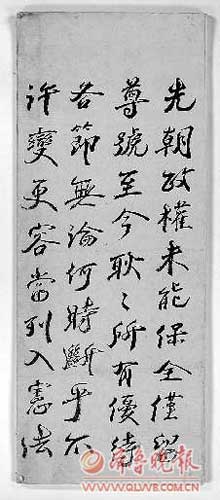 先朝政權未能保全僅留
尊號至今耿々所有優待
各節無論何時斷乎不
許變更容當列入憲法
齊魯晚報
WWW.QLWB.COM.CN